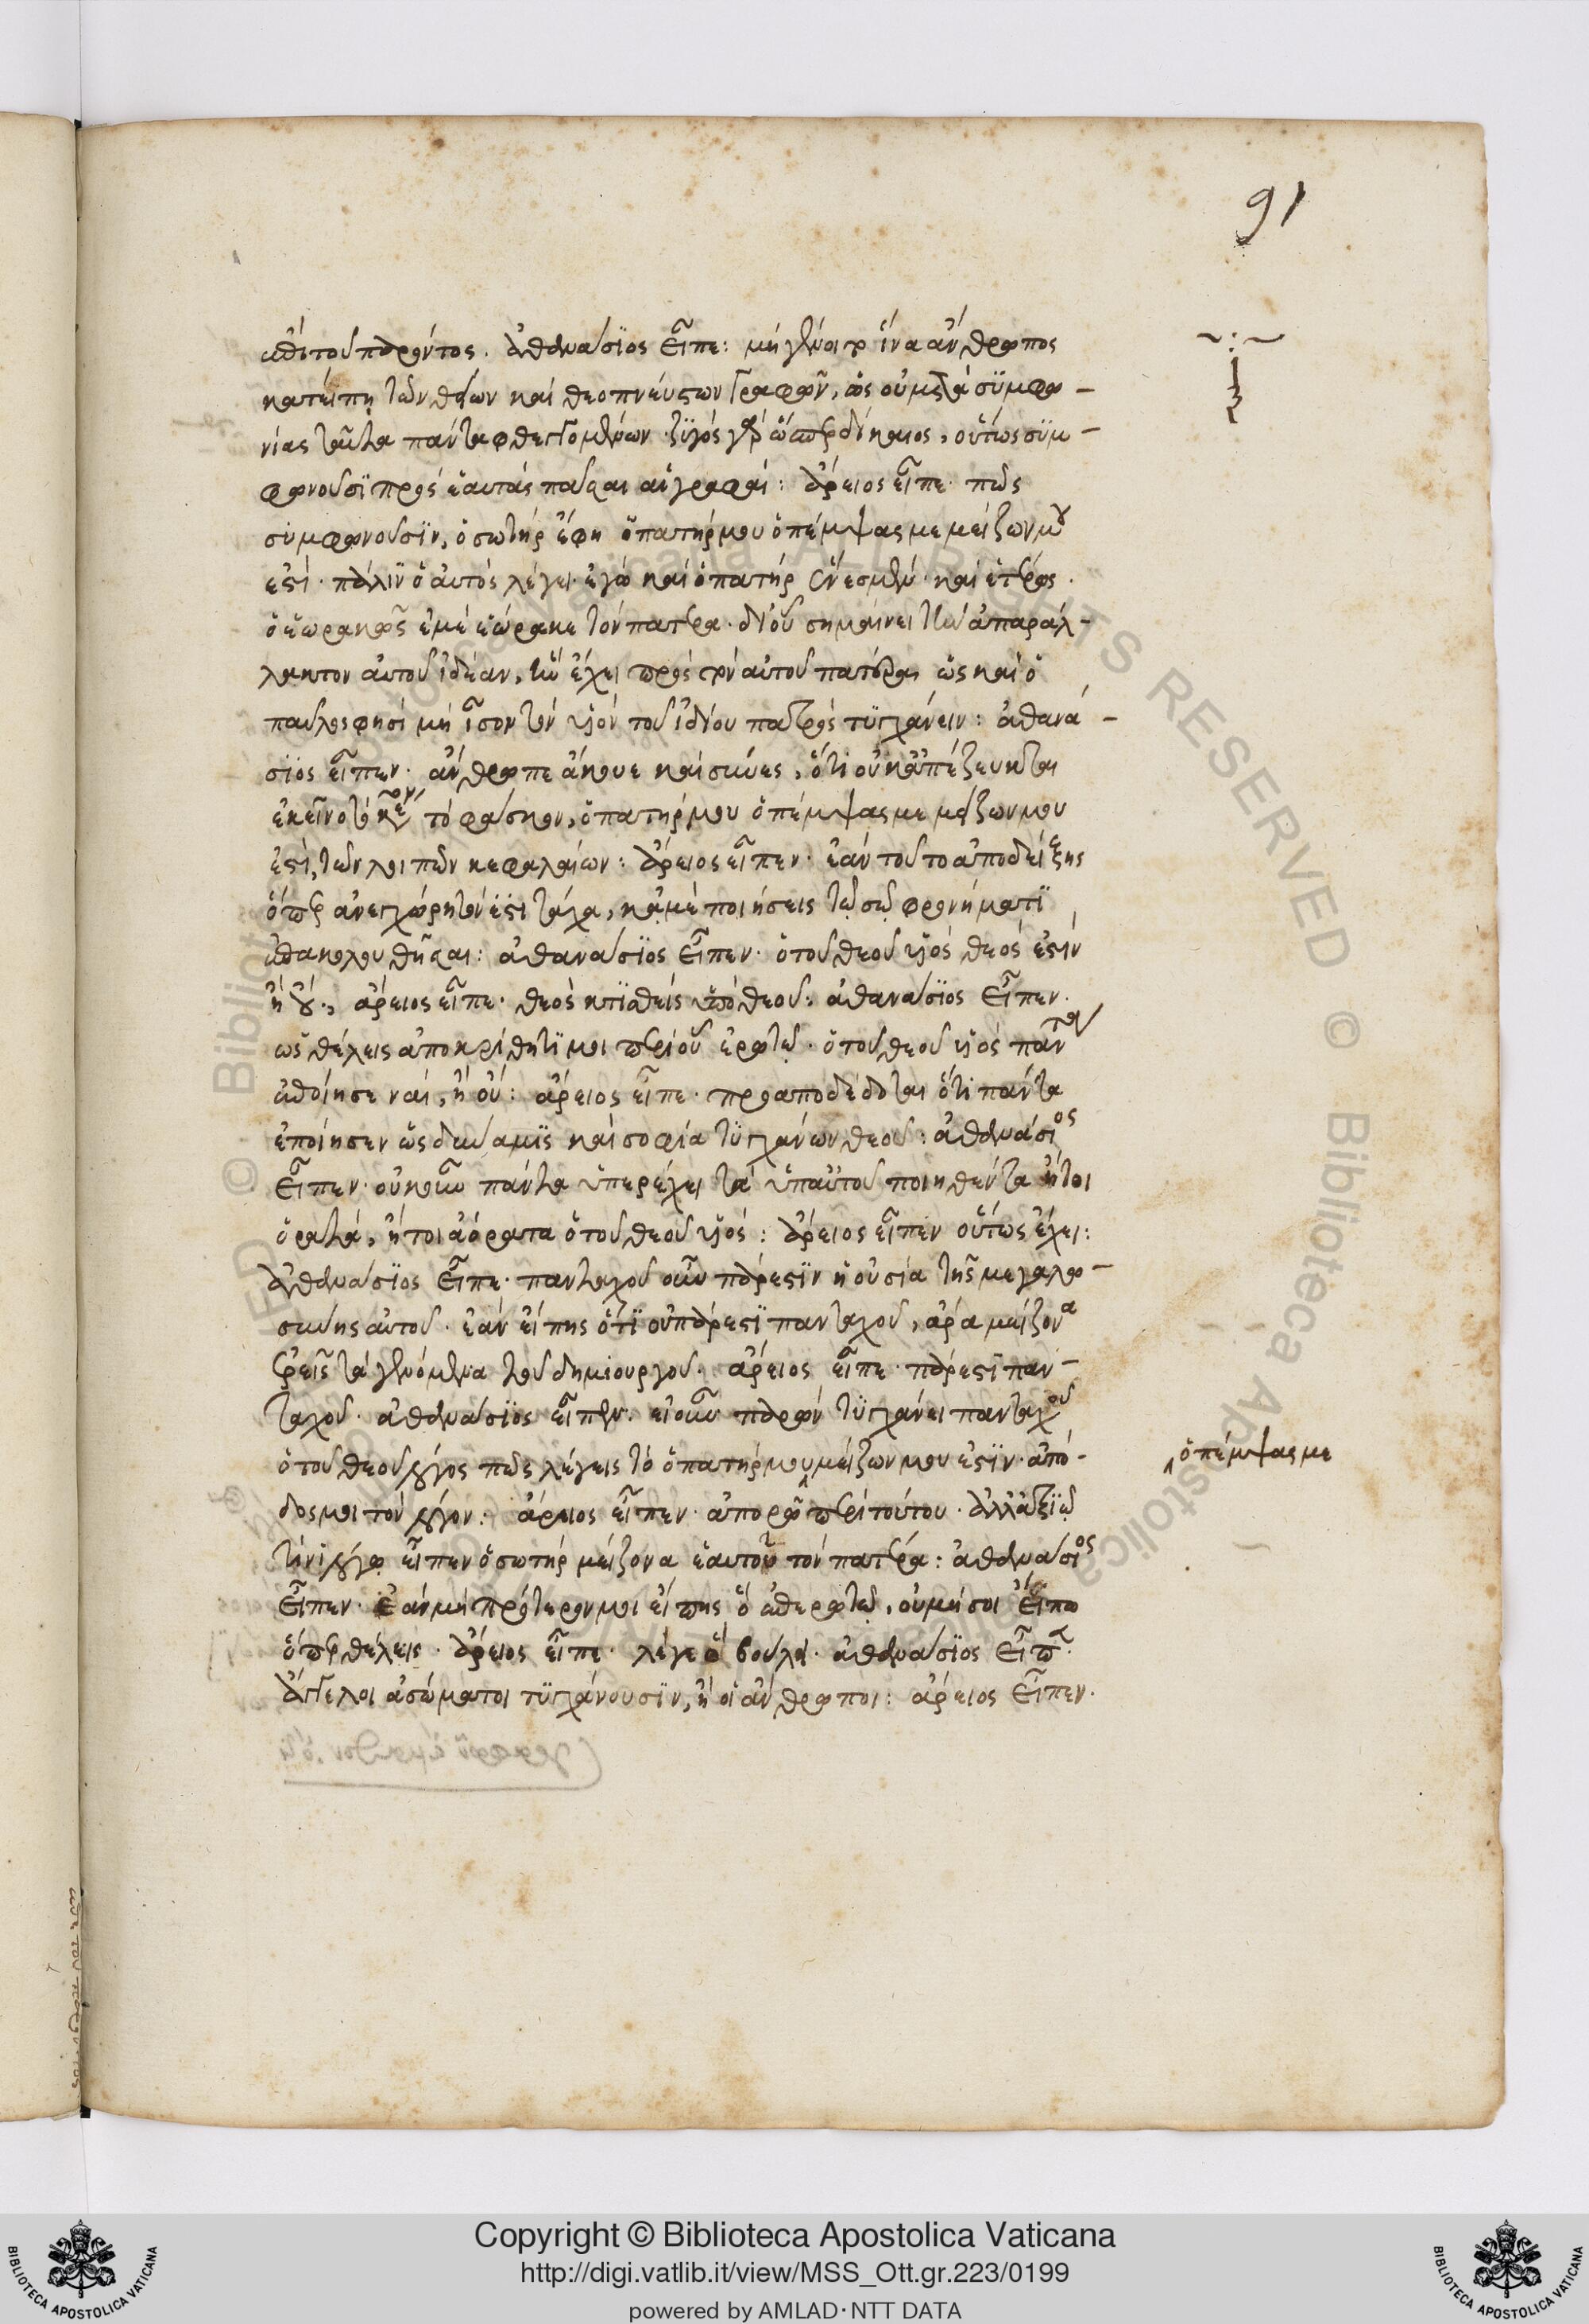 91
ἐπὶ τοῦ παρόντος. ἀθανάσϊος εἶπε: μὴ γένοιτο ἵνα ἄνθρωπος
κατείπῃ τῶν θείων καὶ θεοπνεύστων γραφῶν, ὡς οὐ μετὰ συμφω-
νίας ταῦτα πάντα φθεγγομένων. ζυγὸς γὰρ ὥσπερ δίκαιος, οὕτως συμ-
φωνοῦσϊ πρὸς ἑαυτὰς πᾶσαι αἱ γραφαί: ἄρειος εἶπε· πῶς
συμφωνοῦσϊν, ὁ σωτὴρ ἔφη ὁ πατήρ μου ὁ πέμψας με μείζων μου
ἐστί· πάλϊν ὁ αὐτὸς λέγει· ἐγὼ καὶ ὁ πατὴρ ἕν ἐσμεν· καὶ ἑτέρως.
ὁ ἑωρακὼς ἐμὲ ἑώρακε τὸν πατέρα· δι' οὗ σημαίνει τὴν ἀπαράλ-
λακτον αὐτοῦ ἰδέαν, ἣν ἔχει πρὸς τὸν αὐτοῦ πατέρα, ὡς καὶ ὁ
παῦλος φησὶ μὴ ἴσον τὸν υἱὸν τοῦ ἰδίου πατρὸς τυγχάνειν: ἀθανά-
σϊος εἶπεν· ἄνθρωπε ἄκουε καὶ σύνες, ὅτι οὐκ ἀπέζευκται
ἐκεῖνο τὸ τὸ φάσκον, ὁ πατήρ μου ὁ πέμψας με μείζων μου
ἐστί, τῶν λοιπῶν κεφαλαίων: ἄρειος εἶπεν· ἐὰν τοῦτο ἀποδείξῃς
ὅπερ ἀνεγχώρητόν ἐστι τάχα, κἀμὲ ποιήσεις τῷ σῷ φρονήματϊ
ἐπακολουθῆσαι: ἀθανάσϊος εἶπεν· ὁ τοῦ θεοῦ υἱὸς θεός ἐστιν
ἢ οὔ., ἄρειος εἶπε· θεὸς κτϊσθεὶς ὑπὸ θεοῦ: ἀθανάσϊος εἶπεν.
ὡς θέλεις ἀποκρίθητϊ μοι περὶ οὗ ἐρωτῶ· ὁ τοῦ θεοῦ υἱὸς πάντα
ἐποίησε ναί, ἢ οὔ: ἄρειος εἶπε· προαποδέδοται ὅτι πάντα
ἐποίησεν ὡς δύναμϊς καὶ σοφία τυγχάνων θεοῦ: ἀθανάσιος
εἶπεν· οὐκοῦν πάντα ὑπερέχει τὰ ὑπ' αὐτοῦ ποιηθέντα ἤτοι
ὁρατά, ἤτοι ἀόρατα ὁ τοῦ θεοῦ υἱός: ἄρειος εἶπεν οὕτως ἔχει:
ἀθανάσϊος εἶπε· πανταχοῦ οὖν πάρεστϊν ἡ οὐσία τῆς μεγαλω-
σύνης αὐτοῦ. ἐὰν εἴπῃς ὅτϊ οὐ πάρεστϊ πανταχοῦ, ἄρα μείζονα
ἐρεῖς τὰ γενόμενα τοῦ δημιουργοῦ. ἄρειος εἶπε· πάρεστϊ παν-
ταχοῦ. ἀθανάσϊος εἶπεν. εἰ οὖν παρὼν τυγχάνει πανταχοῦ
ὁ τοῦ θεοῦ λόγος πῶς λέγεις τὸ ὁ πατήρ μου μείζων μου ἐστϊν· ἀπό-
ὁ πέμψας με
δος μοι τὸν λόγον: ἄρειος εἶπεν· ἀπορῶ περὶ τούτου. ἀλλ' ἀξϊῶ
τίνϊ λόγῳ εἶπεν ὁ σωτὴρ μείζονα ἑαυτοῦ τὸν πατέρα: ἀθανάσιος
εἶπεν· ἐὰν μὴ πρότερον μοι εἴπῃς ὃ ἐπερωτῶ, οὐ μή σοι εἴπω
ὅπερ θέλεις. ἄρειος εἶπε· λέγε ὃ βούλει. ἀθανάσϊος εἶπε.
ἄγγελοι ἀσώματοι τυγχάνουσϊν, ἢ οἱ ἄνθρωποι: ἄρειος εἶπεν.
Copyright © Biblioteca Apostolica Vaticana
http://digi.vatlib.it/view/MSS_Ott.gr.223/0199
powered by AMLAD·NTT DATA
BIBLIOTECA APOSTOLICA VATICANA
BIBLIOTECA APOSTOLICA VATICANA